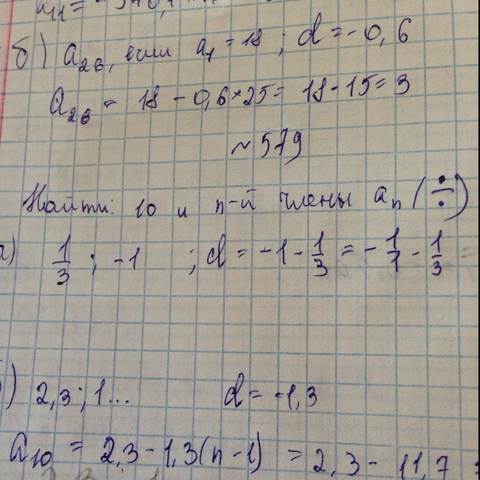 a₁₁ =
б) a₂₆, если a₁ = 18 ; d = -0,6
a₂₆ = 18 - 0,6 × 25 = 18 - 15 = 3
~579
Найти: 10 и n-й члены aₙ (÷)
а) 1/3 ; -1 ; d = -1 - 1/3 = - 1/1 - 1/3 =
2,3 ; 1... d = -1,3
a₁₀ = 2,3 - 1,3(n-1) = 2,3 - 11,7 =